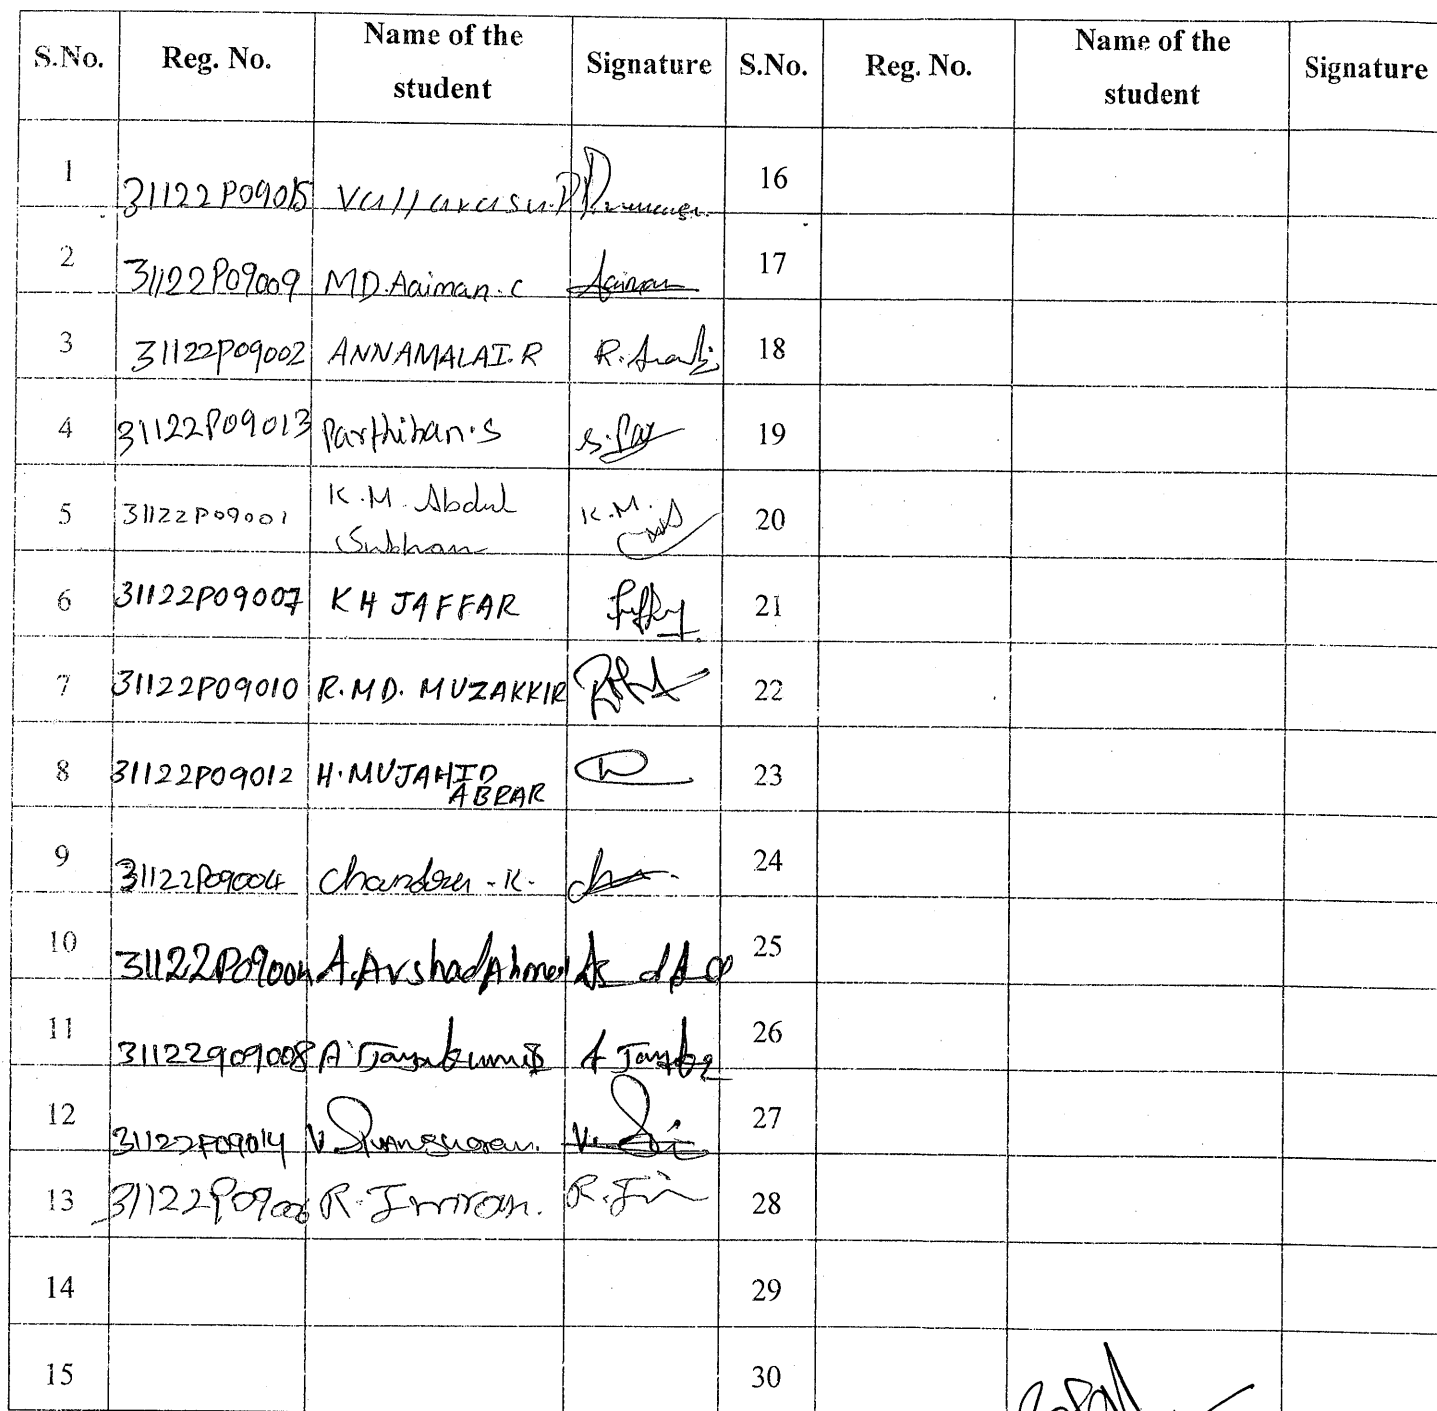 S.No. Reg. No. Name of the student Signature S.No. Reg. No. Name of the student Signature
1 31122P09015 Vallarasu.P 16
2 31122P09009 MD.Aaiman.C Aaiman 17
3 31122P09002 ANNAMALAI.R R. 18
4 31122P09013 Parthiban.S S.Par 19
5 31122P09001 K.M. Abdul Subhan K.M. 20
6 31122P09007 KH JAFFAR 21
7 31122P09010 R.MD. MUZAKKIR 22
8 31122P09012 H.MUJAHID ABRAR 23
9 31122P09004 K. 24
10 A.Arshad Ahmed 25
11 31122909008 A 26
12 31122P09014 V. V. 27
13 R. Imran. R. 28
14 29
15 30